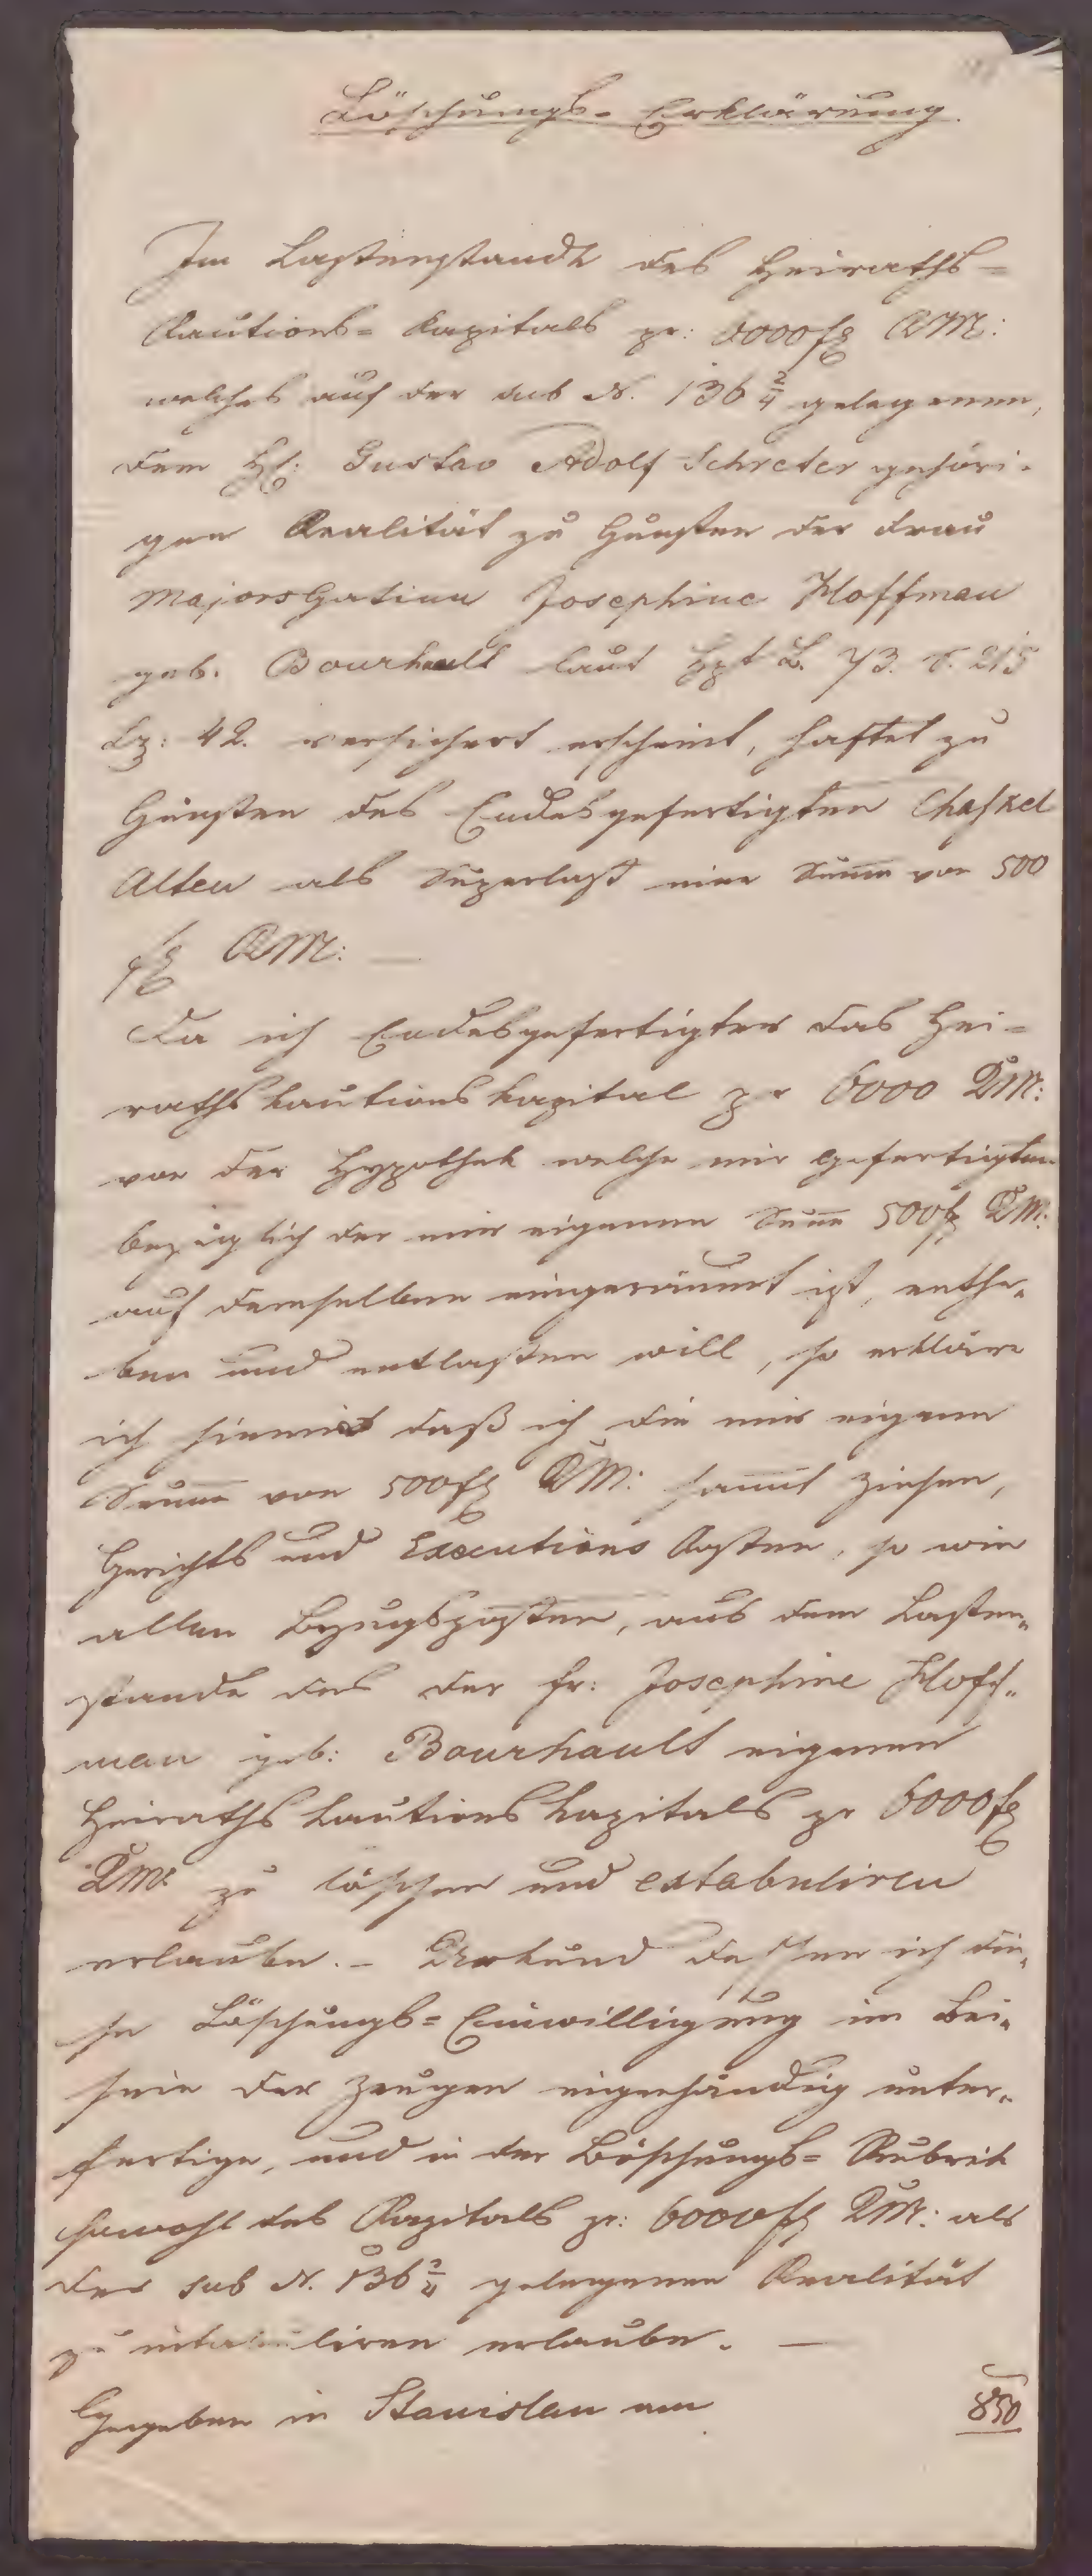 Löschungs- Erklärung.
Im Lastenstande des Heiraths-
Kautions- Kapitals pr: 6000 f CM:
welches auf der sub N. 136 2/4 gelegenen,
dem H: Gustav Adolf Schreter gehöri-
gen Realität zu Gunsten der Frau
Majors Gatinn Josephine Hoffman
geb. Bourhault laut Hpt B. 73. S. 215
Lz: 42. versichert erscheint, haftet zu
Gunsten des Endesgefertigten Chaskel
Alten als Superlast eine Summe von 500
f CM: —
Da ich Endesgefertigter das Hei-
raths Kautions Kapital pr 6000 CM:
von der Hypothek welche mir Gefertigten
bezüglich der mir eigenen Summe 500 f CM:
auf demselben eingeräumt ist, enthe-
ben und entlasten will, so erkläre
ich hiemit daß ich die mir eigene
Summe von 500 f CM: sammt Zinsen,
Gerichts und Executions Kosten, so wie
allen Bezugsposten, aus dem Lasten-
stande des der Fr: Josephine Hoff-
man geb: Bourhault eigenen
Heiraths Kautions Kapitals pr 6000 f
CM: zu löschen und extabuliren
erlaube. – Urkund dessen ich die-
se Löschungs- Einwilligung im Bei-
sein der Zeugen eigenhändig unter-
fertige, und in der Löschungs- Rubrik
sowohl des Kapitals pr: 6000 f CM: als
der sub N. 136 2/4 gelegenen Realität
zu intabuliren erlaube. —
Gegeben in Stanislau am 850